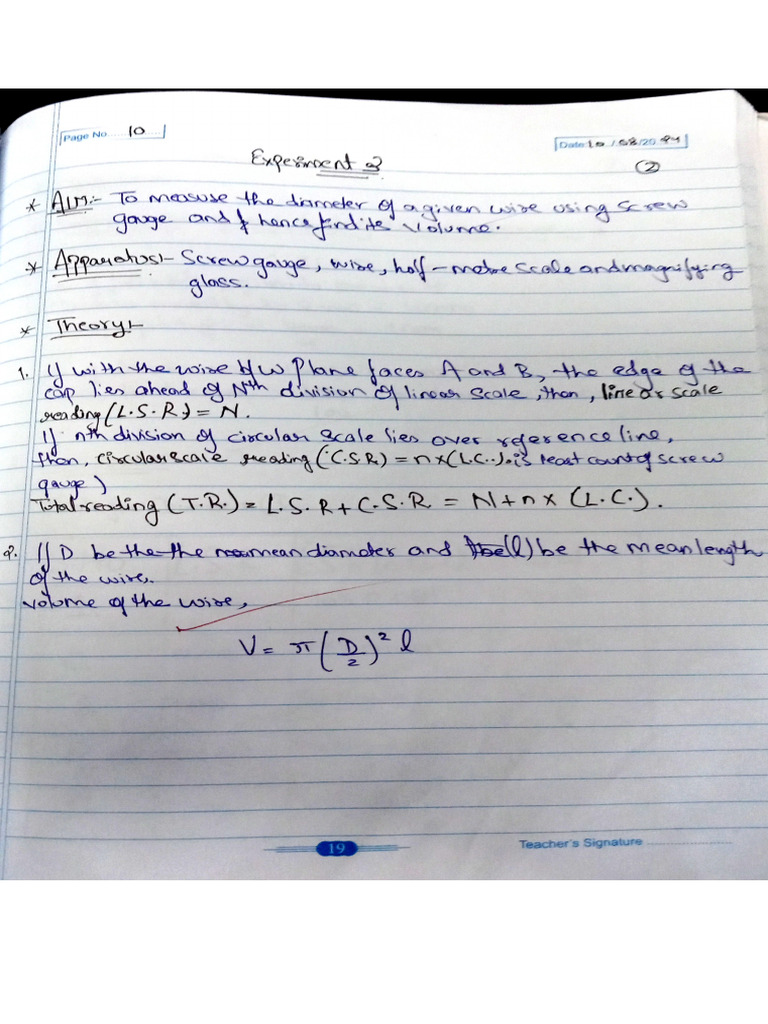 Page No. 10
Date: 10 / 08/20 24
Experiment 3
(2)
* AIM:- To measure the diameter of a given wire using screw
gauge and hence find its volume.
* Apparatus:- Screw gauge, wire, half-metre scale and magnifying
glass.
* Theory:-
1. If with the wire b/w plane faces A and B, the edge of the
cap lies ahead of Nth division of linear scale, then, linear scale
reading (L.S.R.) = N.
If nth division of circular scale lies over reference line,
then, circular scale reading (C.S.R) = n×(L.C.). is least count of screw
gauge)
Total reading (T.R.) = L.S.R + C.S.R. = N+n× (L.C.).
2. If D be the the mean diameter and (l) be the mean length
of the wire.
volume of the wire,
V = π(D/2)² l
19
Teacher's Signature